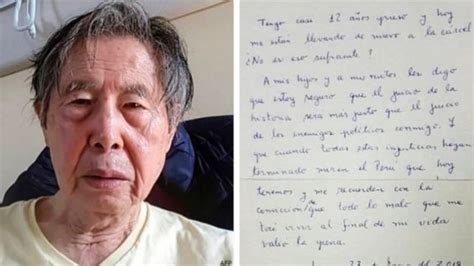 Tengo casi 12 años preso y hoy
me están llevando de nuevo a la cárcel
¿No es eso suficiente?
A mis hijos y a mis nietos les digo
que estoy seguro que el juicio de la
historia será más justo que el juicio
de los enemigos políticos conmigo. Y
que cuando todas estas injusticias hayan
terminado miren el Perú que hoy
tenemos y me recuerden con la
convicción de que todo lo malo que me
tocó vivir al final de mi vida
valió la pena.
23